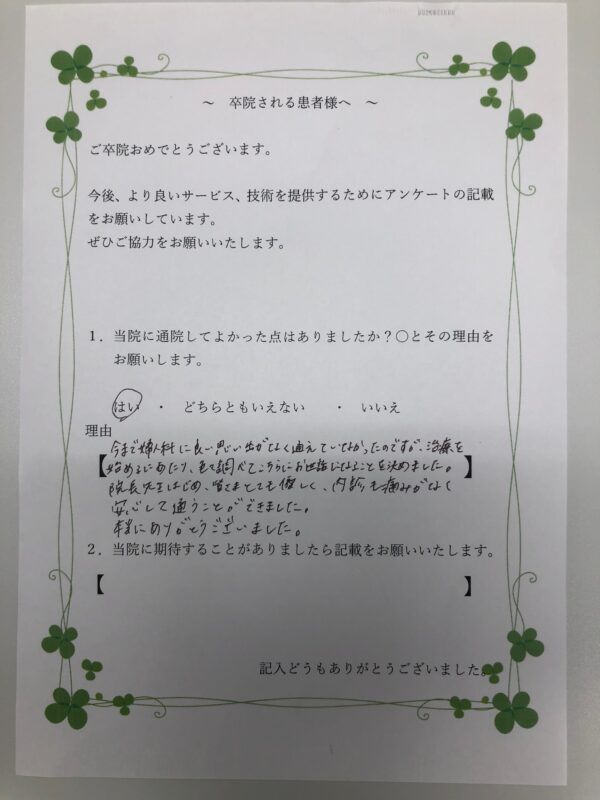 ～ 卒院される患者様へ ～
ご卒院おめでとうございます。
今後、より良いサービス、技術を提供するためにアンケートの記載
をお願いしています。
ぜひご協力をお願いいたします。
1．当院に通院してよかった点はありましたか？○とその理由を
お願いします。
はい ・ どちらともいえない ・ いいえ
理由
今まで婦人科に良い思い出がなく通えていなかったのですが、治療を
【始めるにあたり、色々調べてこちらにお世話になることを決めました。】
院長先生はじめ、皆さまとても優しく、内診も痛みがなく
安心して通うことができました。
本当にありがとうございました。
2．当院に期待することがありましたら記載をお願いいたします。
【 】
記入どうもありがとうございました。